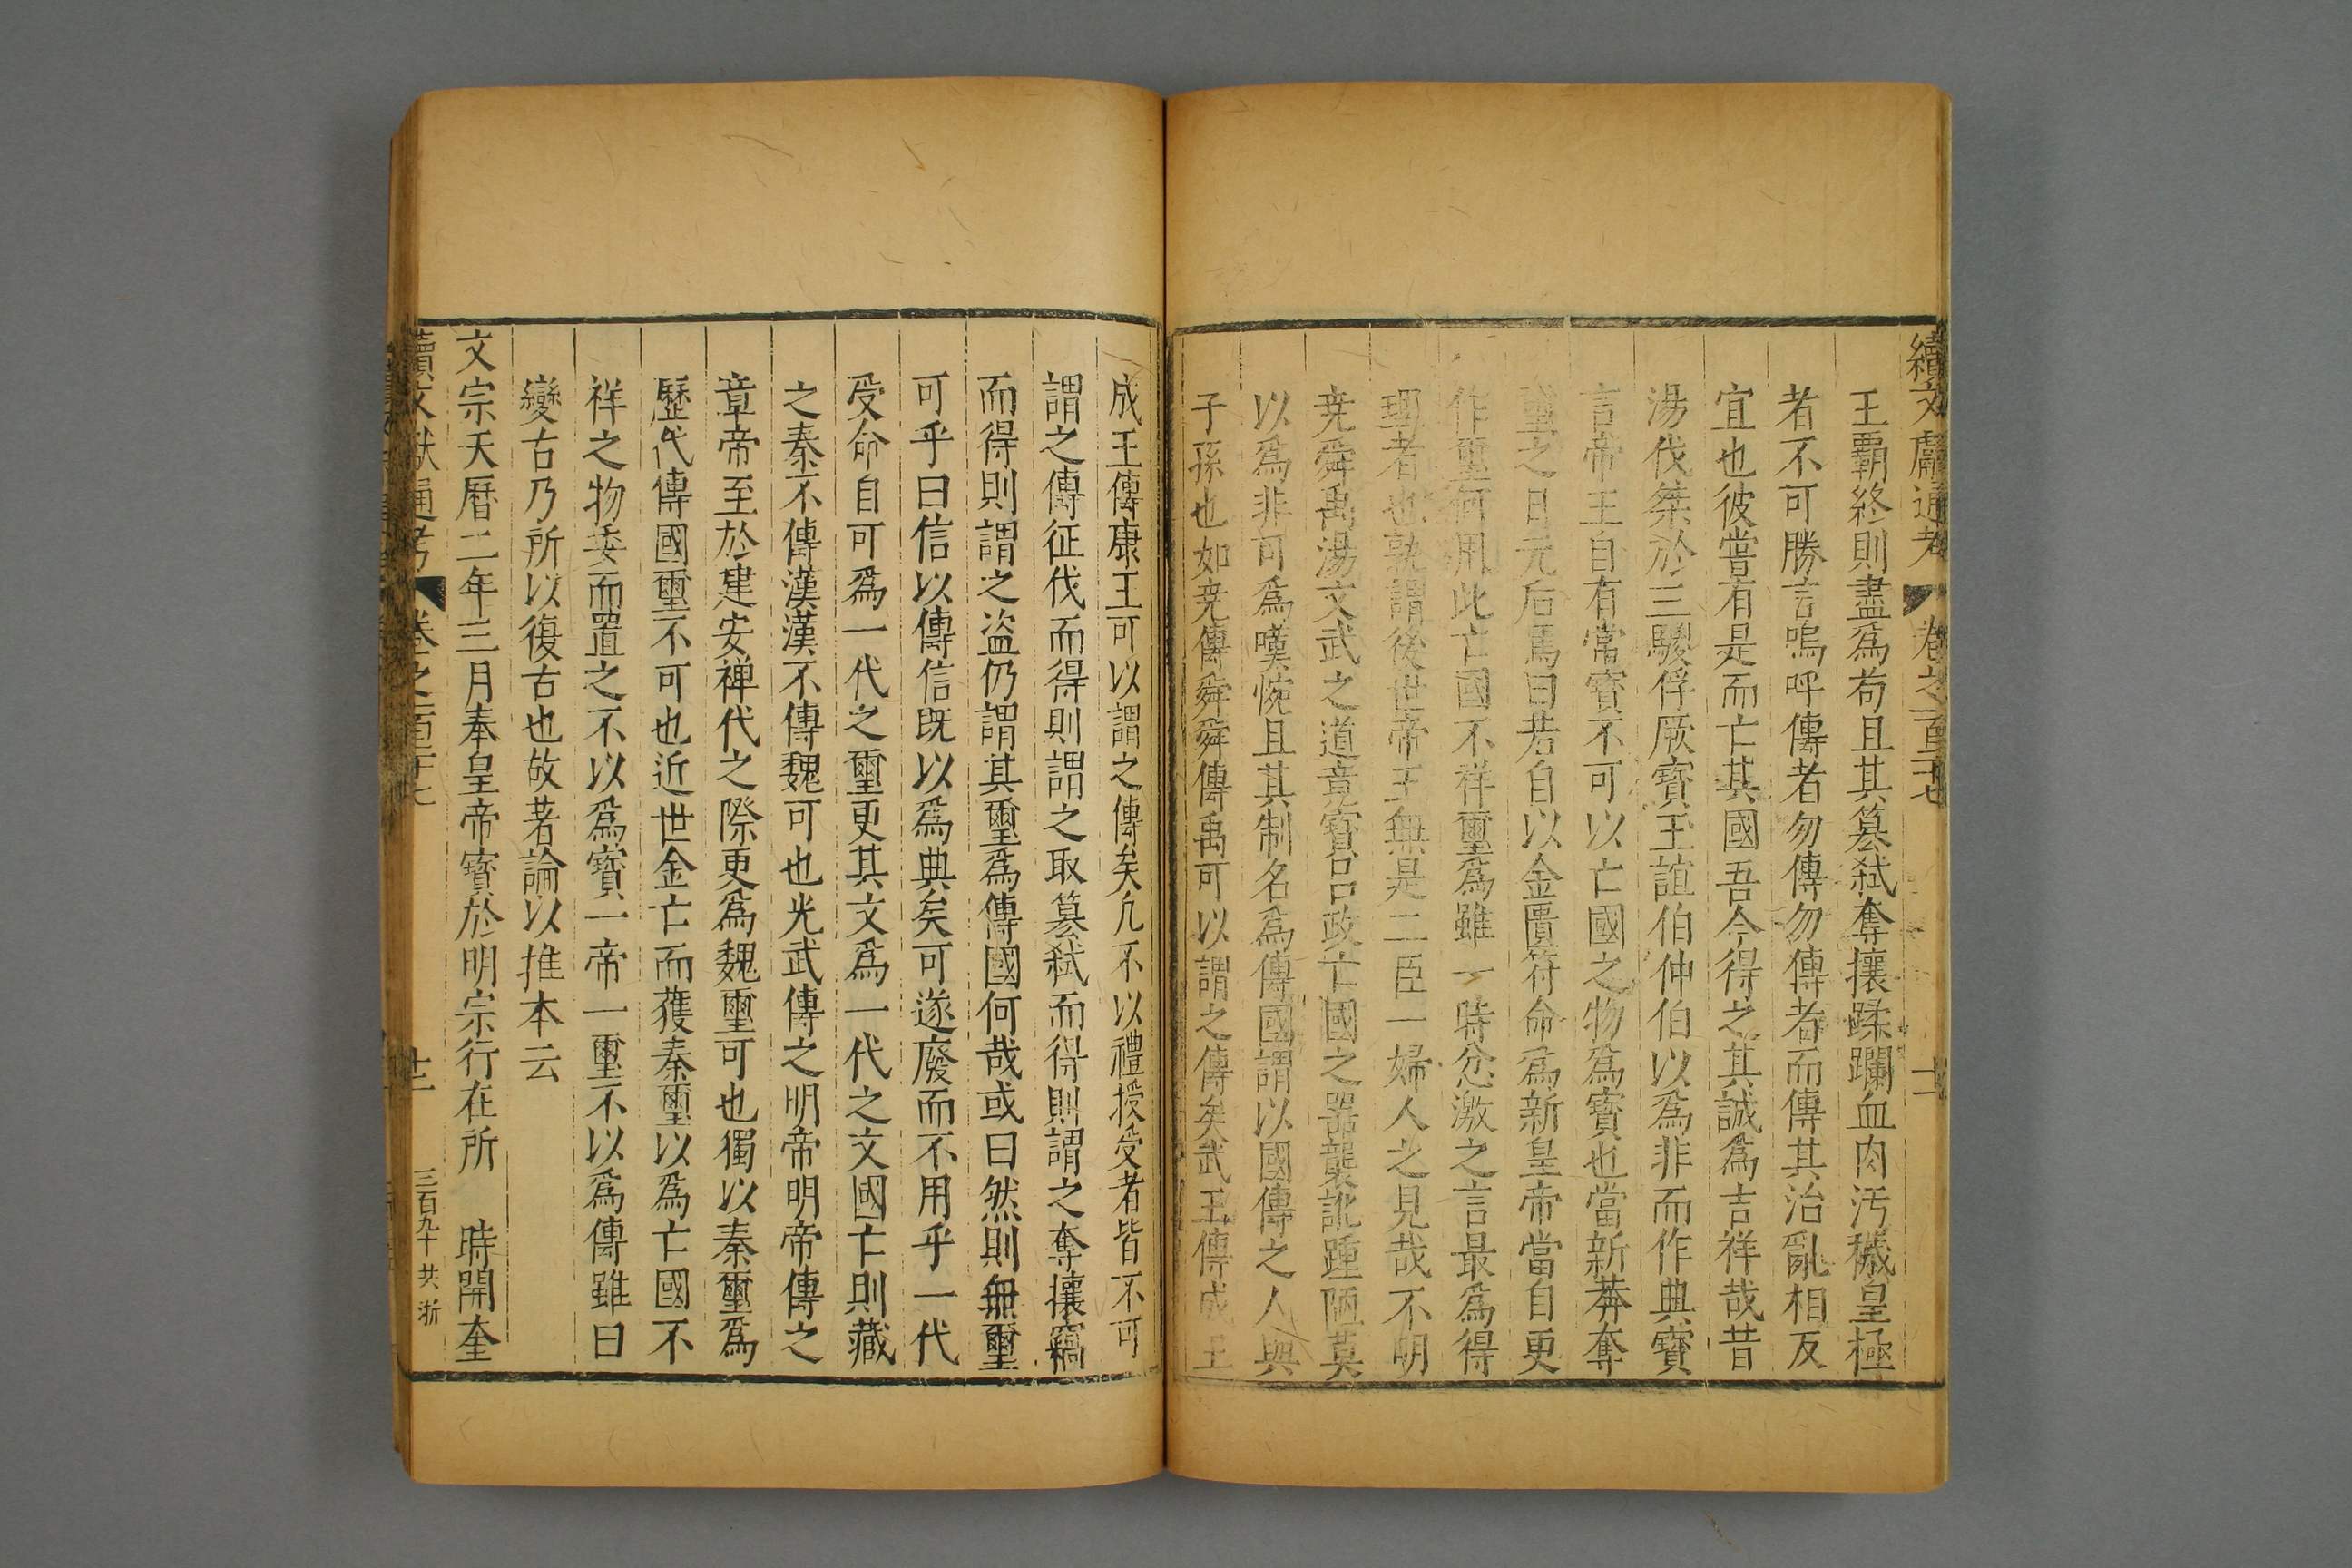 續文獻通考 卷之一百二十七 十二
王覇終則盡爲苟且其簒弑奪攘蹂躪血肉污穢皇極
者不可勝言嗚呼傳者勿傳勿傳者而傳其治亂相反
宜也彼嘗有是而亡其國吾今得之其誠爲吉祥哉昔
湯伐桀於三朡俘厥寶玉誼伯仲伯以爲非而作典寶
言帝王自有常寶不可以亡國之物爲寶也當新莽奪
璽之日元后罵曰若自以金匱符命爲新皇帝當自更
作璽何用此亡國不祥璽爲雖一時忿激之言最爲得
理者也孰謂後世帝王無是二臣一婦人之見哉不明
堯舜禹湯文武之道竟寶呂政亡國之器襲訛踵陋莫
以爲非可爲嘆惋且其制名爲傳國謂以國傳之人與
子孫也如堯傳舜舜傳禹可以謂之傳矣武王傳成王
成王傳康王可以謂之傳矣凡不以禮授受者皆不可
謂之傳征伐而得則謂之取簒弑而得則謂之奪攘竊
而得則謂之盗仍謂其璽爲傳國何哉或曰然則無璽
可乎曰信以傳信既以爲典矣可遂廢而不用乎一代
受命自可爲一代之璽更其文爲一代之文國亡則藏
之秦不傳漢漢不傳魏可也光武傳之明帝明帝傳之
章帝至於建安禅代之際更爲魏璽可也獨以秦璽爲
歷代傳國璽不可也近世金亡而獲秦璽以爲亡國不
祥之物委而置之不以爲寶一帝一璽不以爲傳雖曰
變古乃所以復古也故著論以推本云
文宗天曆二年三月奉皇帝寶於明宗行在所 時開奎
續文獻通考 卷之一百二十七 十二 三百九十 共 浙